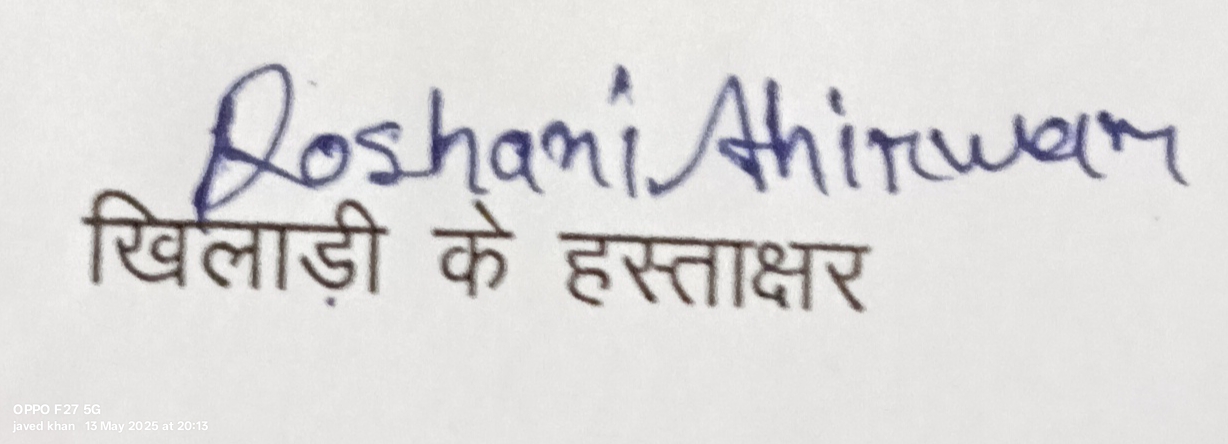 Roshani Ahirwar
खिलाड़ी के हस्ताक्षर
OPPO F27 5G
javed khan 13 May 2025 at 20:13